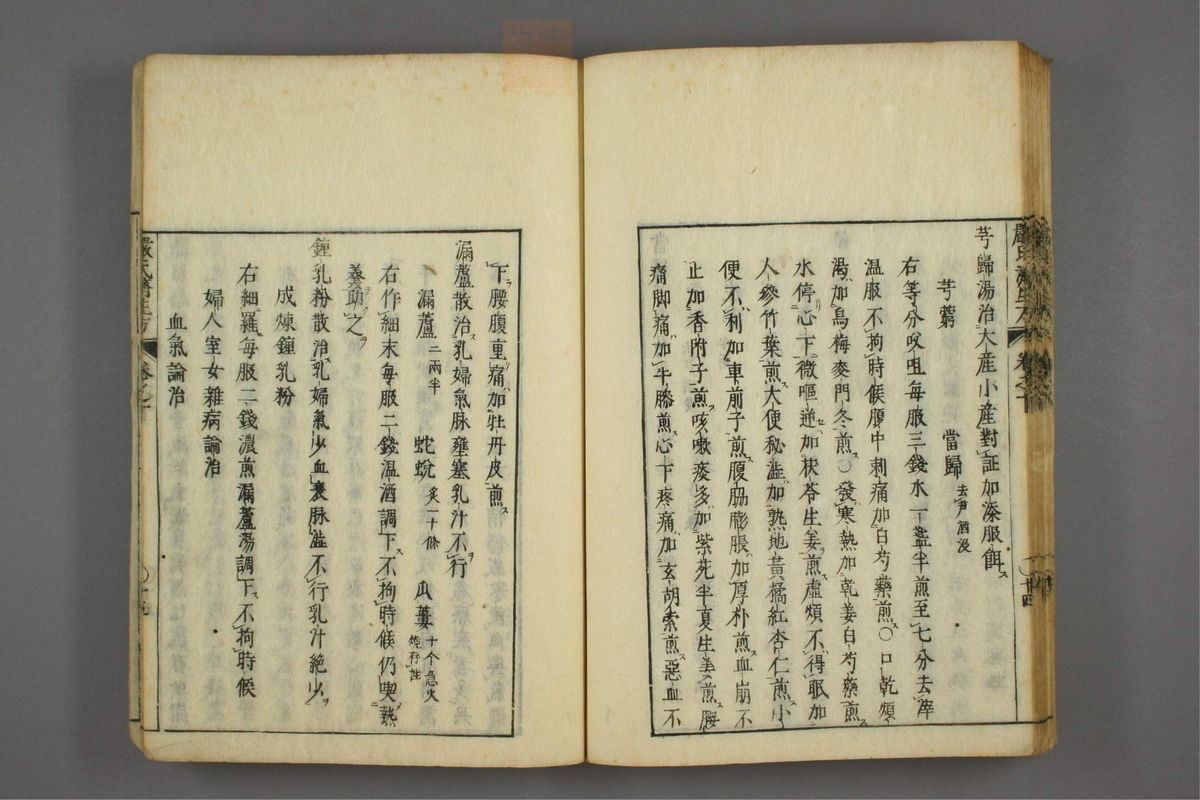 芎歸湯治大産小産對証加添服餌ス
芎藭 當歸 去尹酒浸
右等分㕮咀毎服三錢水一盞半煎至七分去滓
温服不拘時候腹中刺痛加白芍藥煎ス○口乾煩
渇加烏梅麥門冬煎ス○發寒熱加乾姜白芍藥煎ス
水停心下微嘔逆加茯苓生姜煎ス虛煩不得眠加
人參竹葉煎ス大便秘澁加熟地黄橘紅杏仁煎ス小
便不利加車前子煎ス腹脇膨脹加厚朴煎ス血崩不
止加香附子煎ス咳嗽痰多加紫苑半夏生姜煎腰
痛脚痛加牛膝煎ス心下疼痛加玄胡索煎惡血不
下腰腹重痛加牡丹皮煎ス
漏蘆散治乳婦氣脉壅塞乳汁不行
漏蘆 二兩半 蛇蛻 炙一十條 瓜蔞 十个急火燒存性
右作細末毎服二錢温酒調下ス不拘時候仍喫熱
羹助之
鍾乳粉散治乳婦氣少血衰脉澁不行乳汁絶少
成煉鍾乳粉
右細羅毎服二錢濃煎漏蘆湯調下ス不拘時候
婦人室女雜病論治
血氣論治